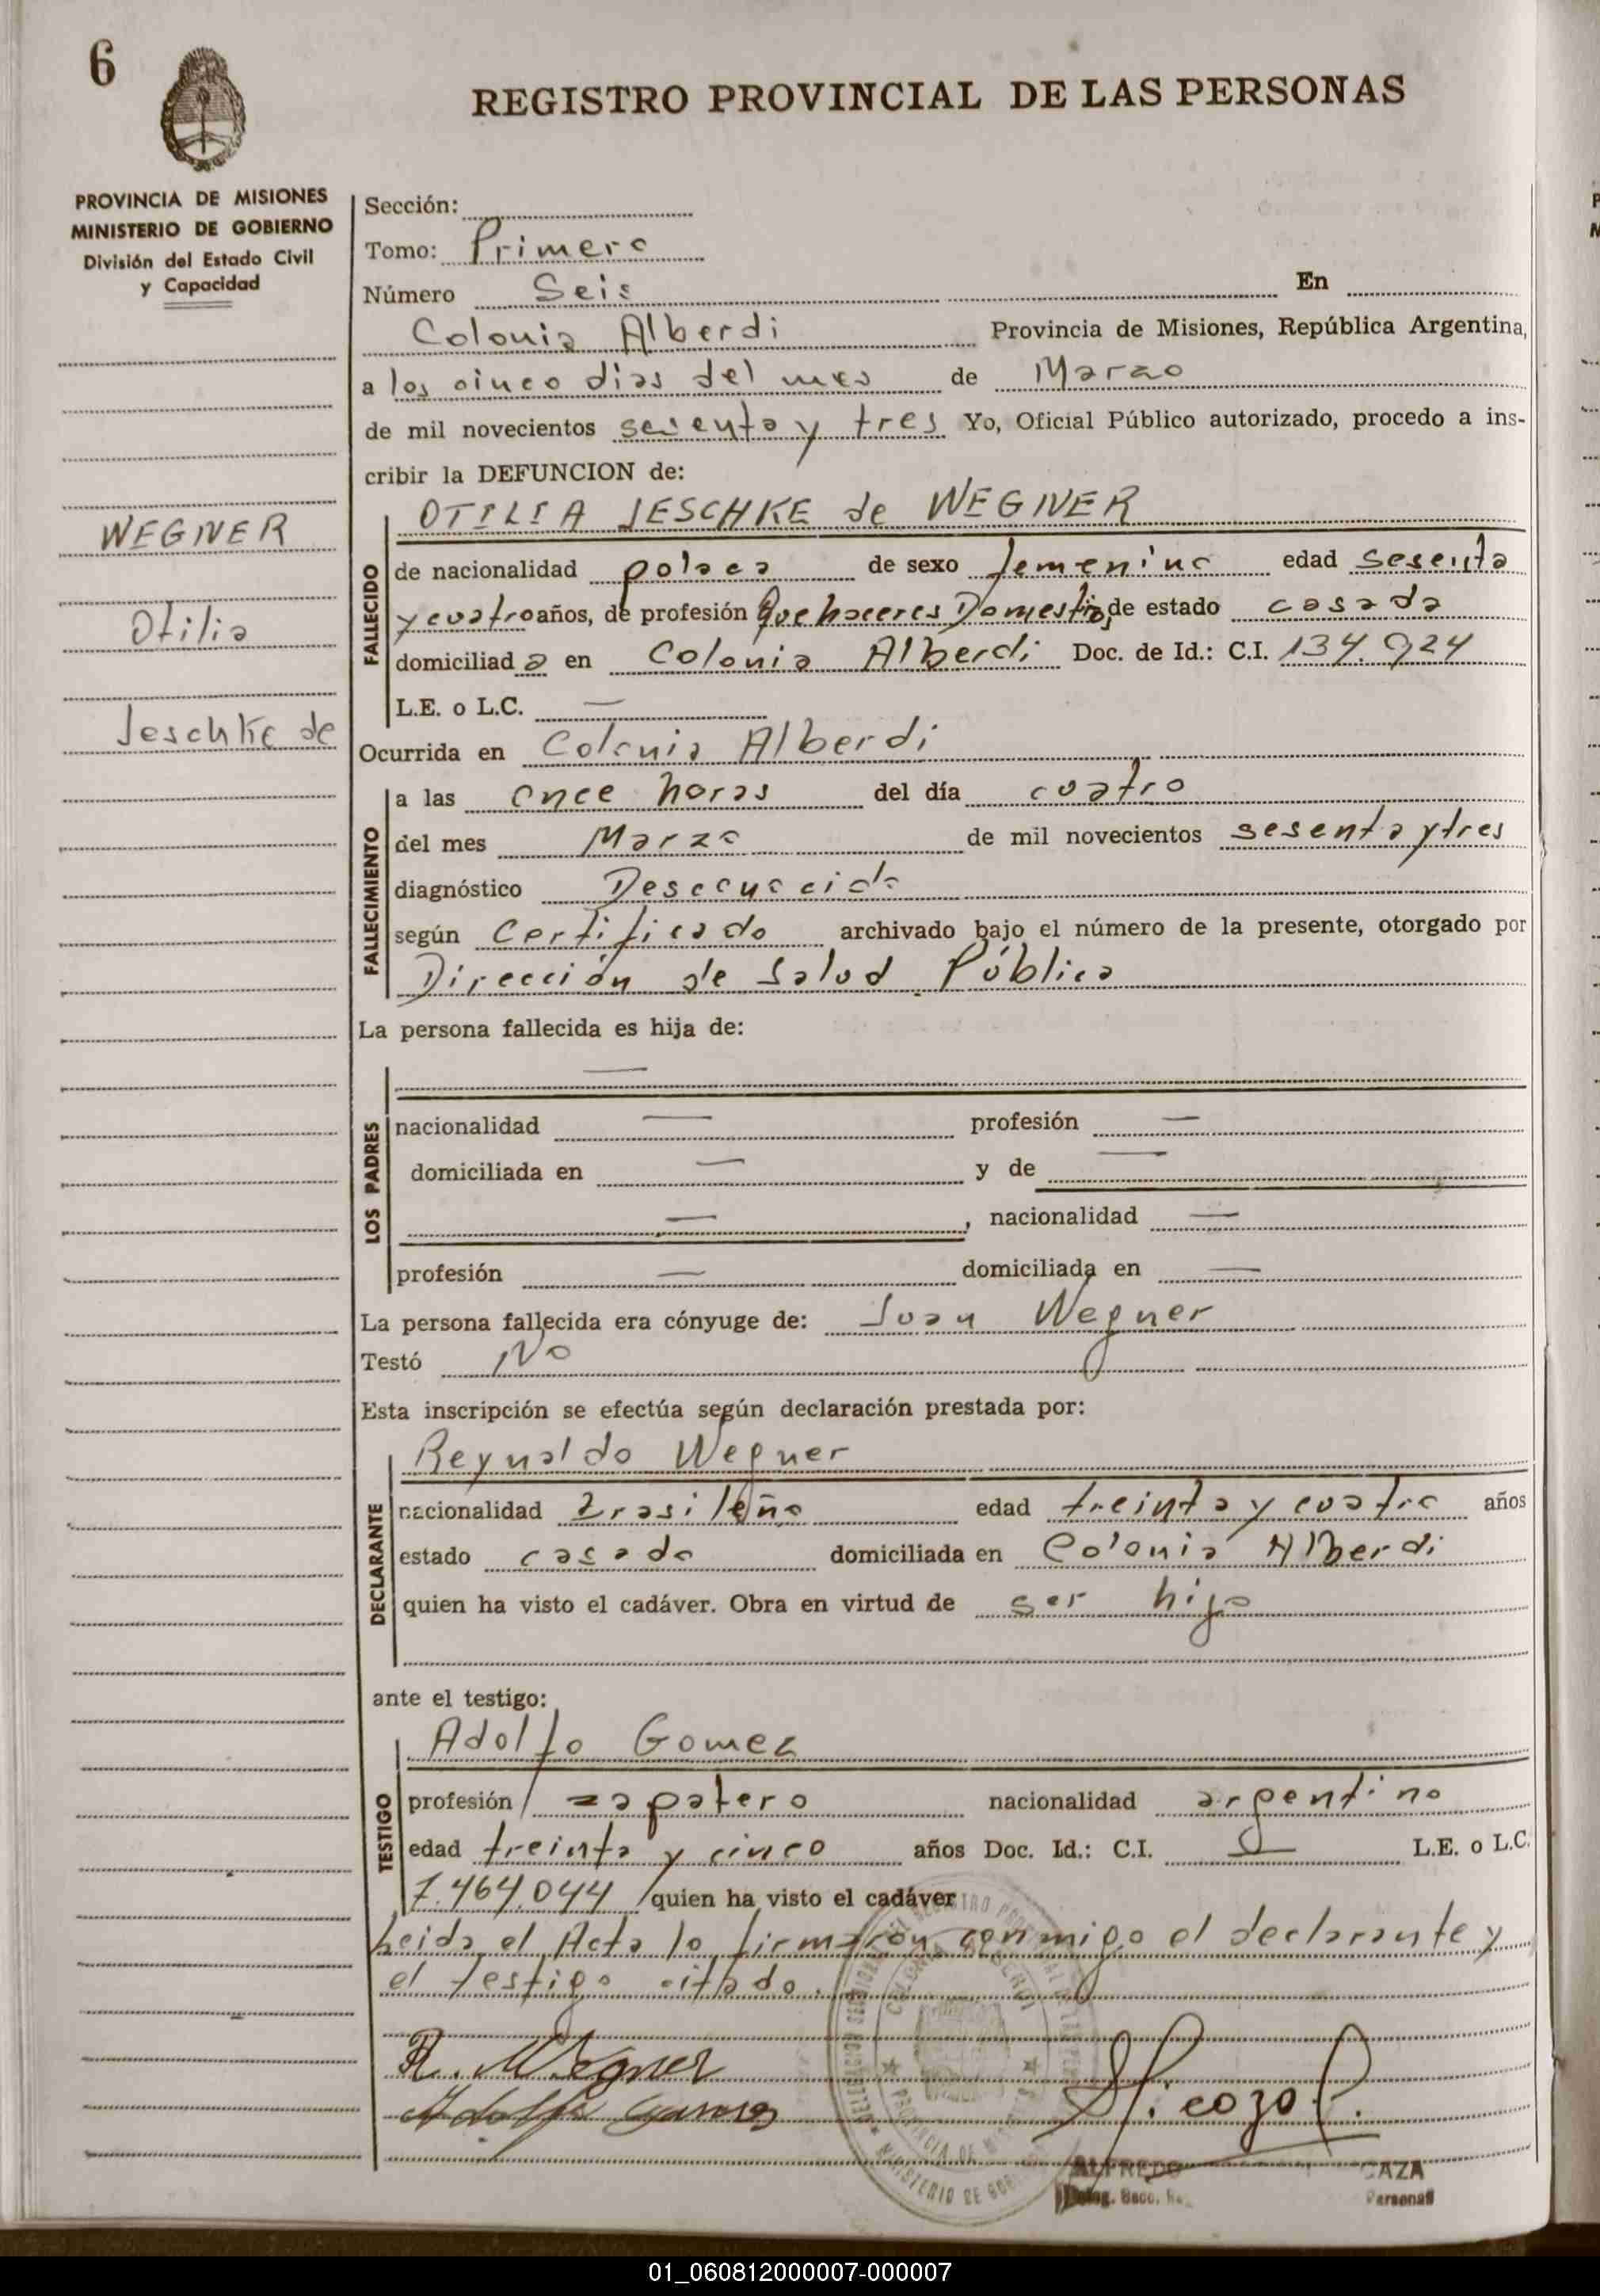 6
REGISTRO PROVINCIAL DE LAS PERSONAS
PROVINCIA DE MISIONES
MINISTERIO DE GOBIERNO
División del Estado Civil
y Capacidad
WEGNER
Otilia
Jeschke de
Sección:
Tomo: Primero
Número Seis En
Colonia Alberdi Provincia de Misiones, República Argentina,
a los cinco dias del mes de Marzo
de mil novecientos sesenta y tres Yo, Oficial Público autorizado, procedo a ins-
cribir la DEFUNCION de:
FALLECIDO
OTILIA JESCHKE de WEGNER
de nacionalidad polaca de sexo femenino edad sesenta
y cuatro años, de profesión Quehaceres Domesticos de estado casada
domiciliad a en Colonia Alberdi Doc. de Id.: C.I. 134.924
L.E. o L.C. —
Ocurrida en Colonia Alberdi
FALLECIMIENTO
a las once horas del día cuatro
del mes Marzo de mil novecientos sesenta y tres
diagnóstico Desconocido
según Certificado archivado bajo el número de la presente, otorgado por
Dirección de Salud Pública
La persona fallecida es hija de:
LOS PADRES
—
nacionalidad — profesión —
domiciliada en — y de —
—, nacionalidad —
profesión — domiciliada en —
La persona fallecida era cónyuge de: Juan Wegner
Testó No
Esta inscripción se efectúa según declaración prestada por:
DECLARANTE
Reynaldo Wegner
nacionalidad brasileño edad treinta y cuatro años
estado casado domiciliada en Colonia Alberdi
quien ha visto el cadáver. Obra en virtud de ser hijo
ante el testigo:
TESTIGO
Adolfo Gomez
profesión zapatero nacionalidad argentino
edad treinta y cinco años Doc. Id.: C.I. — L.E. o L.C.
7.464.044 quien ha visto el cadáver
Leida el Acta lo firmaron conmigo el declarante y
el testigo citado.
R. Wegner
Adolfo Gomez
ALFREDO CAZA
01_060812000007-000007